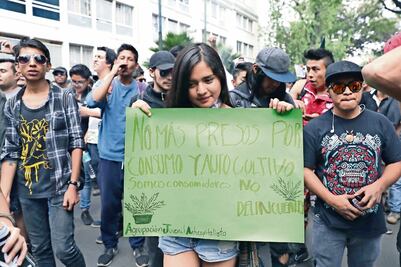 NO MAS PRESOS POR
CONSUMO Y AUTOCULTIVO
SOMOS CONSUMIDORES NO
DELINCUENTES
AGRUPACIÓN JUVENIL ANTICAPITALISTA